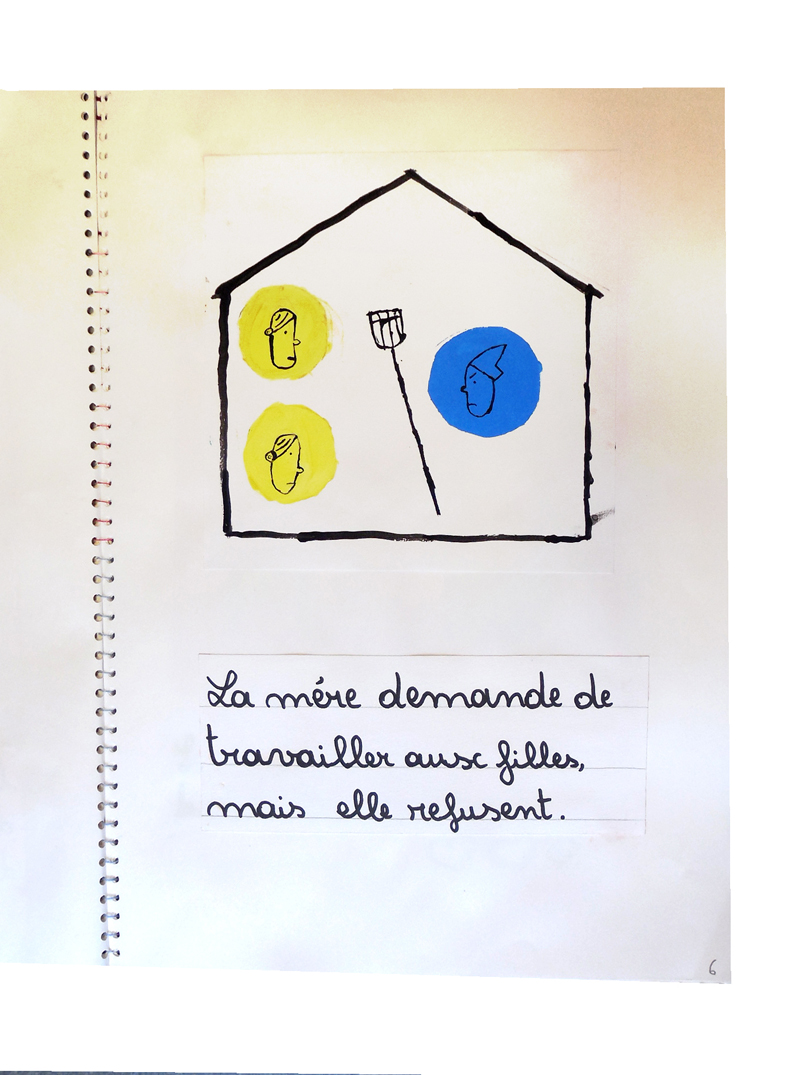 La mére demande de
travailler aux filles,
mais elle refusent.
6